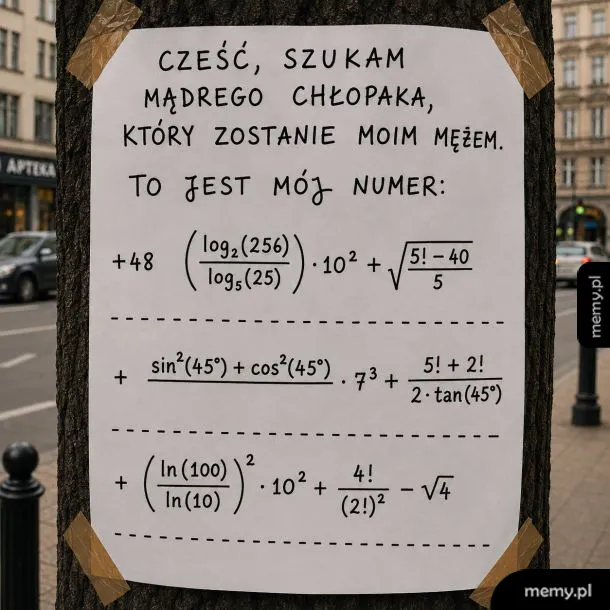 CZEŚĆ, SZUKAM
MĄDREGO CHŁOPAKA,
KTÓRY ZOSTANIE MOIM MĘŻEM.
TO JEST MÓJ NUMER:
+48 (log₂(256) / log₅(25)) · 10² + √((5! − 40) / 5)
+ (sin²(45°) + cos²(45°)) / · 7³ + (5! + 2!) / (2 · tan(45°))
+ (ln(100) / ln(10))² · 10² + 4! / (2!)² − √4
APTEKA
memy.pl
memy.pl